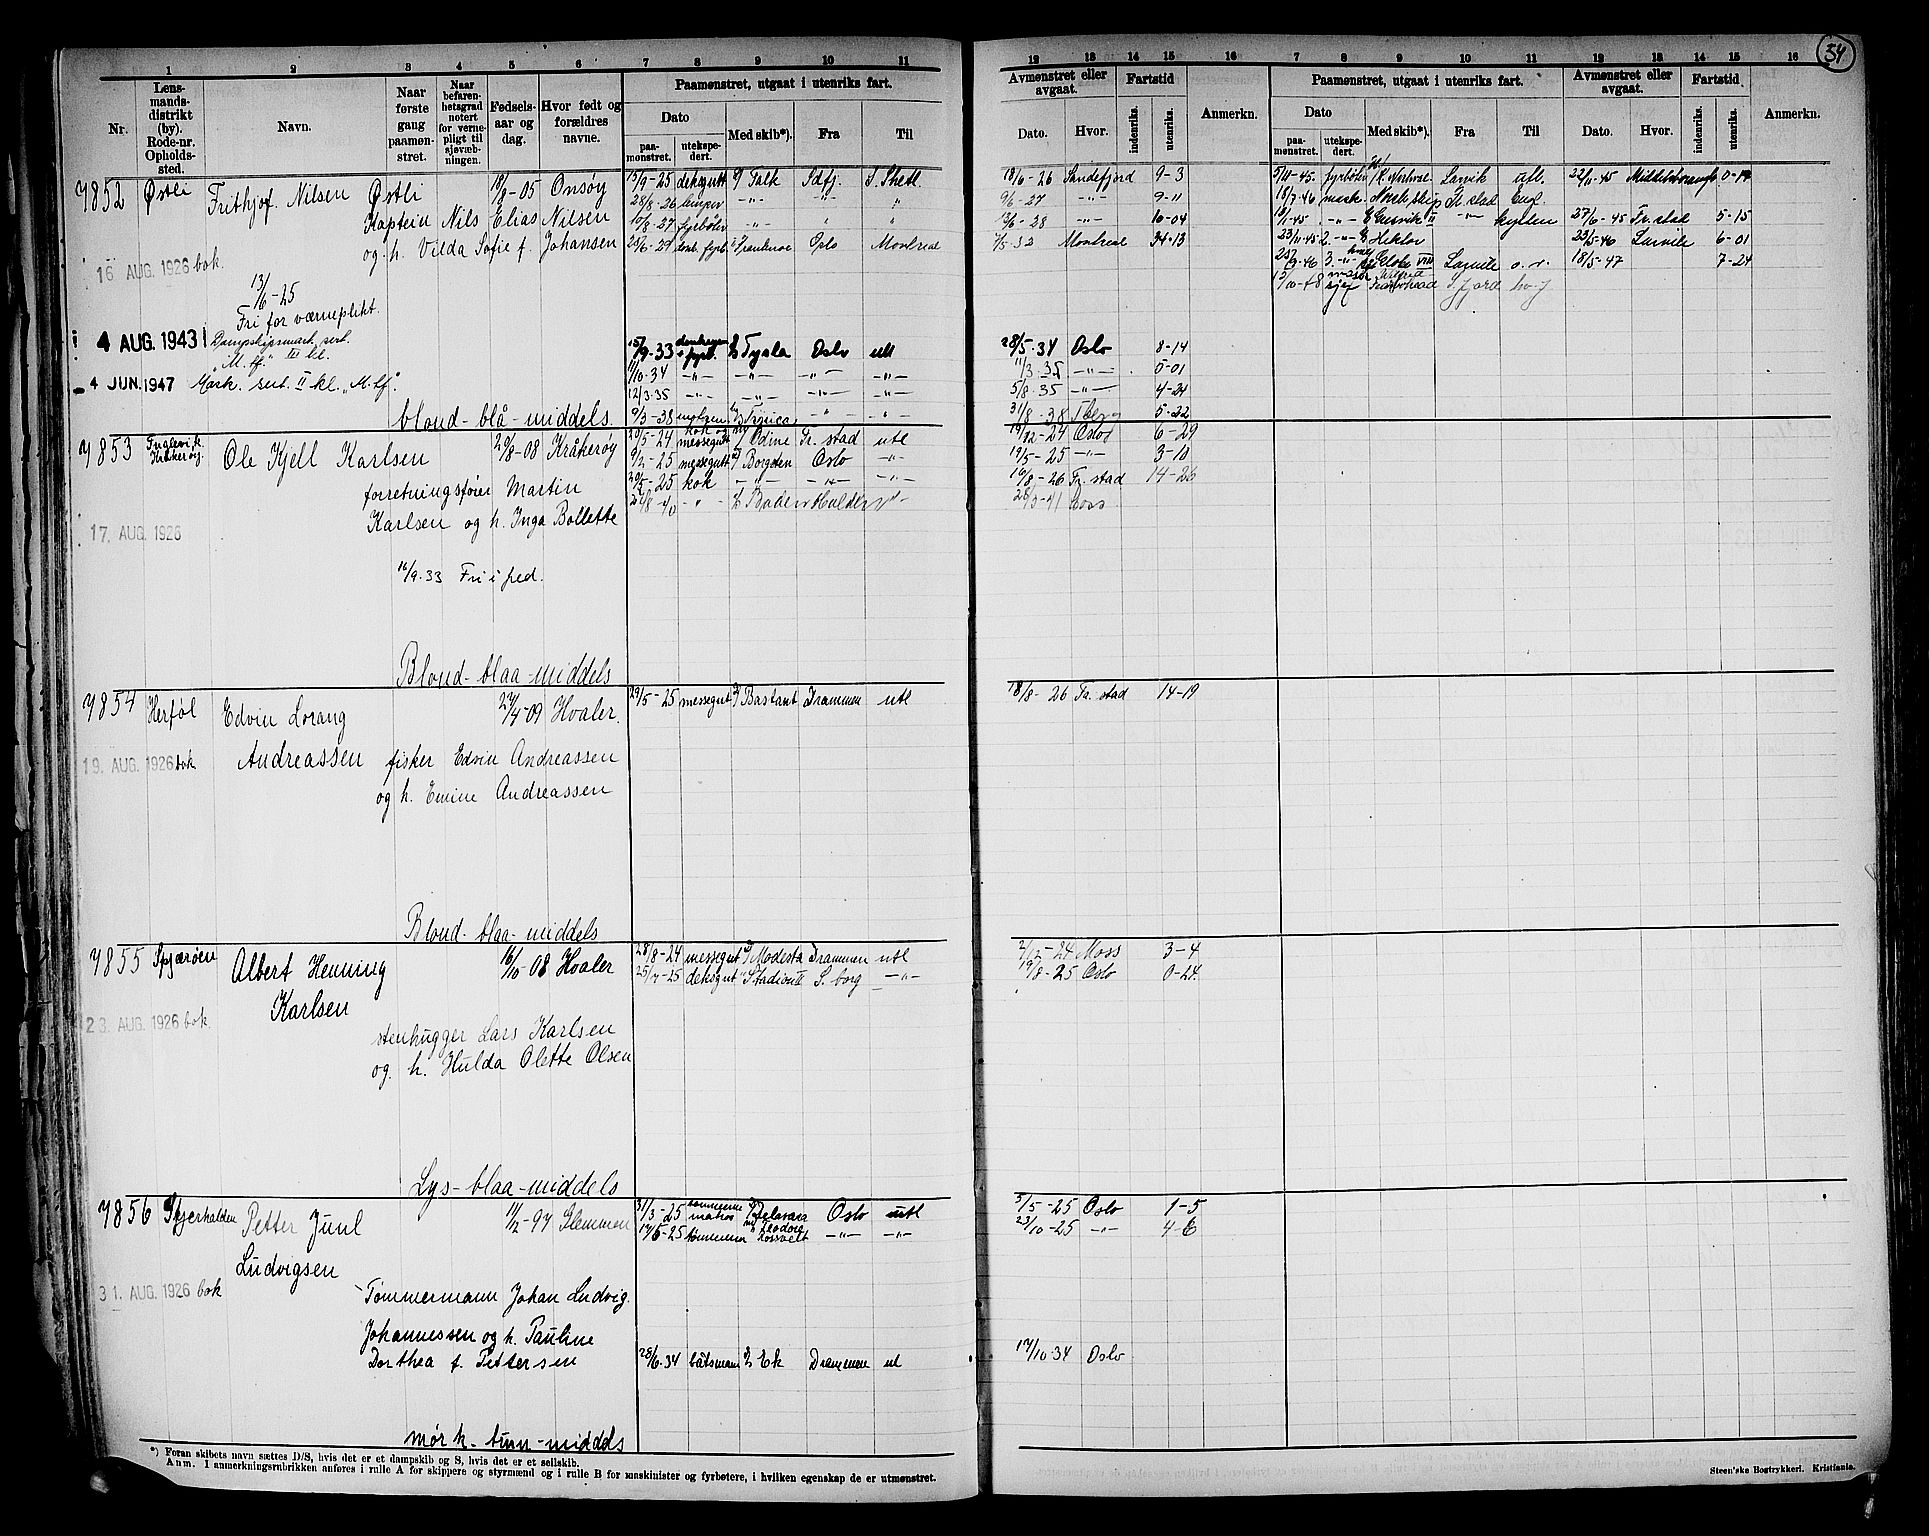 34
1 2 3 4 5 6 7 8 9 10 11
12 13 14 15 16 7 8 9 10 11 12 13 14 15 16
Nr. Lensmandsdistrikt (by). Rode-nr. Opholdssted. Navn. Naar første gang paamønstret. Naar befarenhetsgrad notert for vernepligt til sjøvæbningen. Fødselsaar og dag. Hvor født og forældres navne.
Paamønstret, utgaat i utenriks fart.
Dato Med skib*). Fra Til
paamønstret. utekspedert.
Avmønstret eller avgaat. Fartstid Anmerkn.
Dato. Hvor. indenriks. utenriks.
Paamønstret, utgaat i utenriks fart. Avmønstret eller avgaat. Fartstid Anmerkn.
Dato Med skib*). Fra Til Dato. Hvor. indenriks. utenriks.
paamønstret. utekspedert.
7852 Østli Frithjof Nilsen Østli 18/8-05 Onsøy
Kaptein Nils Elias Nilsen
og h. Vilda Sofie f. Johansen
16 AUG. 1926 bok.
13/6-25
Fri for værneplikt.
4 AUG. 1943
Dampskipsmask. sert.
"M.tf." III kl.
4 JUN. 1947 Mask. sert. II kl. "M.tf."
blond-blå-middels.
15/9-25 deksgutt Falk Sdfj. S. Shetl. 18/6-26 Sandefjord 9-3
28/8-26 lemper -"- -"- " 9/6-27 -"- 9-11
10/8-27 fyrbøter -"- " " 13/6-28 -"- 10-04
25/6-29 donk. fyrb. Oslo Montreal 7/5-32 Montreal 34-13
15/9-33 Tysla Oslo utl 28/5-34 Oslo 8-14
11/10-34 -"- -"- -"- -"- 11/3-35 -"- 5-01
12/3-35 -"- -"- -"- -"- 5/8-35 -"- 4-24
9/3-38 Tronica -"- -"- 31/8-38 Tberg 5-22
5/11-45 fyrbøter Larvik atl. 22/11-45 0-17
18/7-46 mask. Norsk skip Fr.stad Engl.
10/1-45 -"- Gusvik II -"- kysten 27/6-45 Fr.stad 5-15
23/11-45 2. -"- Hektor 23/5-46 Larvik 6-01
3. -"- Globe VIII Larvik 18/5-47 7-24
12/10-48 Sfjord hv.f
7853 Kråkerøy. Ole Kjell Karlsen 20/8-08 Kråkerøy
forretningsfører Martin
Karlsen og h. Inga Bollette
17. AUG. 1926
16/9-33 Fri i fred.
Blond-blaa-middels
20/5-24 kok og messegutt Odine Fr.stad utl 19/12-24 Oslo 6-29
9/2-25 messegutt Borgsten Oslo -"- 19/5-25 -"- 3-10
20/5-25 kok -"- -"- -"- 16/8-26 Fr.stad 14-26
-"- Balder Halden -"- 28/3-41 Moss
7854 Herføl Edvin Lorang 27/4-09 Hvaler.
Andreassen fisker Edvin Andreassen
og h. Emine Andreassen
19. AUG. 1926 bok
Blond-blaa-middels
29/5-25 messegut Bastant Drammen utl 18/8-26 Fr.stad 14-19
7855 Spjærøen Albert Henning 16/10-08 Hvaler
Karlsen
23. AUG. 1926 bok.
stenhugger Lars Karlsen
og. h. Hulda Olette Olsen
Lys-blaa-middels
28/8-24 messegut Modesta Drammen utl 2/12-24 Moss 3-4
25/7-25 deksgut Stadion II S.borg -"- 19/8-25 Oslo 0-24
7856 Skjærhalden Petter Juul 11/2-97 Glemmen
Ludvigsen
31. AUG. 1926 bok
Tømmermann Johan Ludvig
Johannessen og h. Pauline
Dorthea f. Pettersen
mørk-brun-middels
31/3-25 tømmerm matros Delaware Oslo utl 5/5-25 Oslo 1-5
17/6-25 tømmerm Teodore Rosevelt -"- -"- 23/10-25 -"- 4-6
28/6-34 båtsmann Ek Drammen utl 17/10-34 Oslo
*) Foran skibets navn sættes D/S, hvis det er et dampskib og S, hvis det er et seilskib.
Anm. I anmerkningsrubrikken anføres i rulle A for skippere og styrmænd og i rulle B for maskinister og fyrbøtere, i hvilken egenskap de er utmønstret.
Steen'ske Bogtrykkeri. Kristiania.